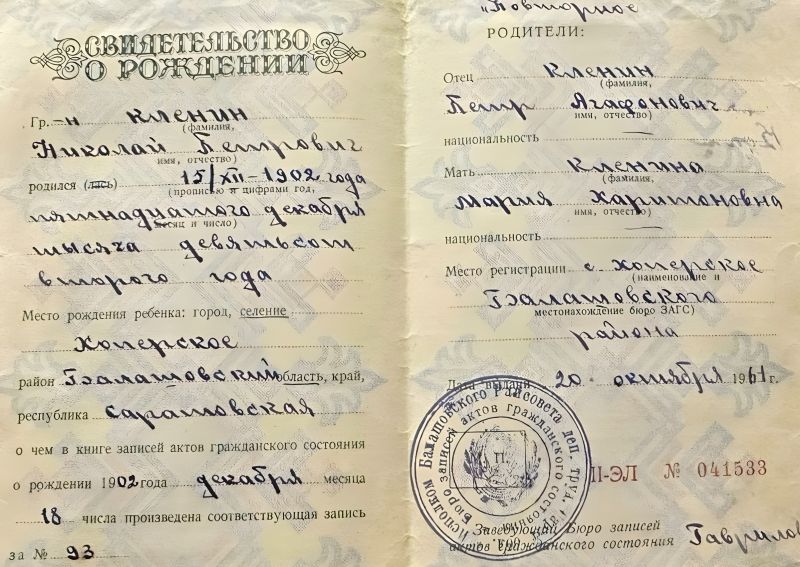 СВИДЕТЕЛЬСТВО
О РОЖДЕНИИ
Гр.-н Кленин
(фамилия,
Николай Петрович
имя, отчество)
родился (лась) 15/XII-1902 года
(прописью и цифрами год,
пятнадцатого декабря
месяц и число)
тысяча девятьсот
второго года
Место рождения ребенка: город, селение
Хоперское
район Балашовский область, край,
республика Саратовская
о чем в книге записей актов гражданского состояния
о рождении 1902 года декабря месяца
18 числа произведена соответствующая запись
за № 93
"Повторное
РОДИТЕЛИ:
Отец Кленин
(фамилия,
Петр Агафонович
имя, отчество)
национальность —
Мать Кленина
(фамилия,
Мария Харитоновна
имя, отчество)
национальность —
Место регистрации с. Хоперское
(наименование и
Балашовского
местонахождение бюро ЗАГС)
района
Дата выдачи 20 октября 1961 г.
Исполком Балашовского Райсовета деп. труд.
Бюро записей актов гражданского состояния
II-ЭЛ № 041533
Заведующий Бюро записей
актов гражданского состояния Гаврилов